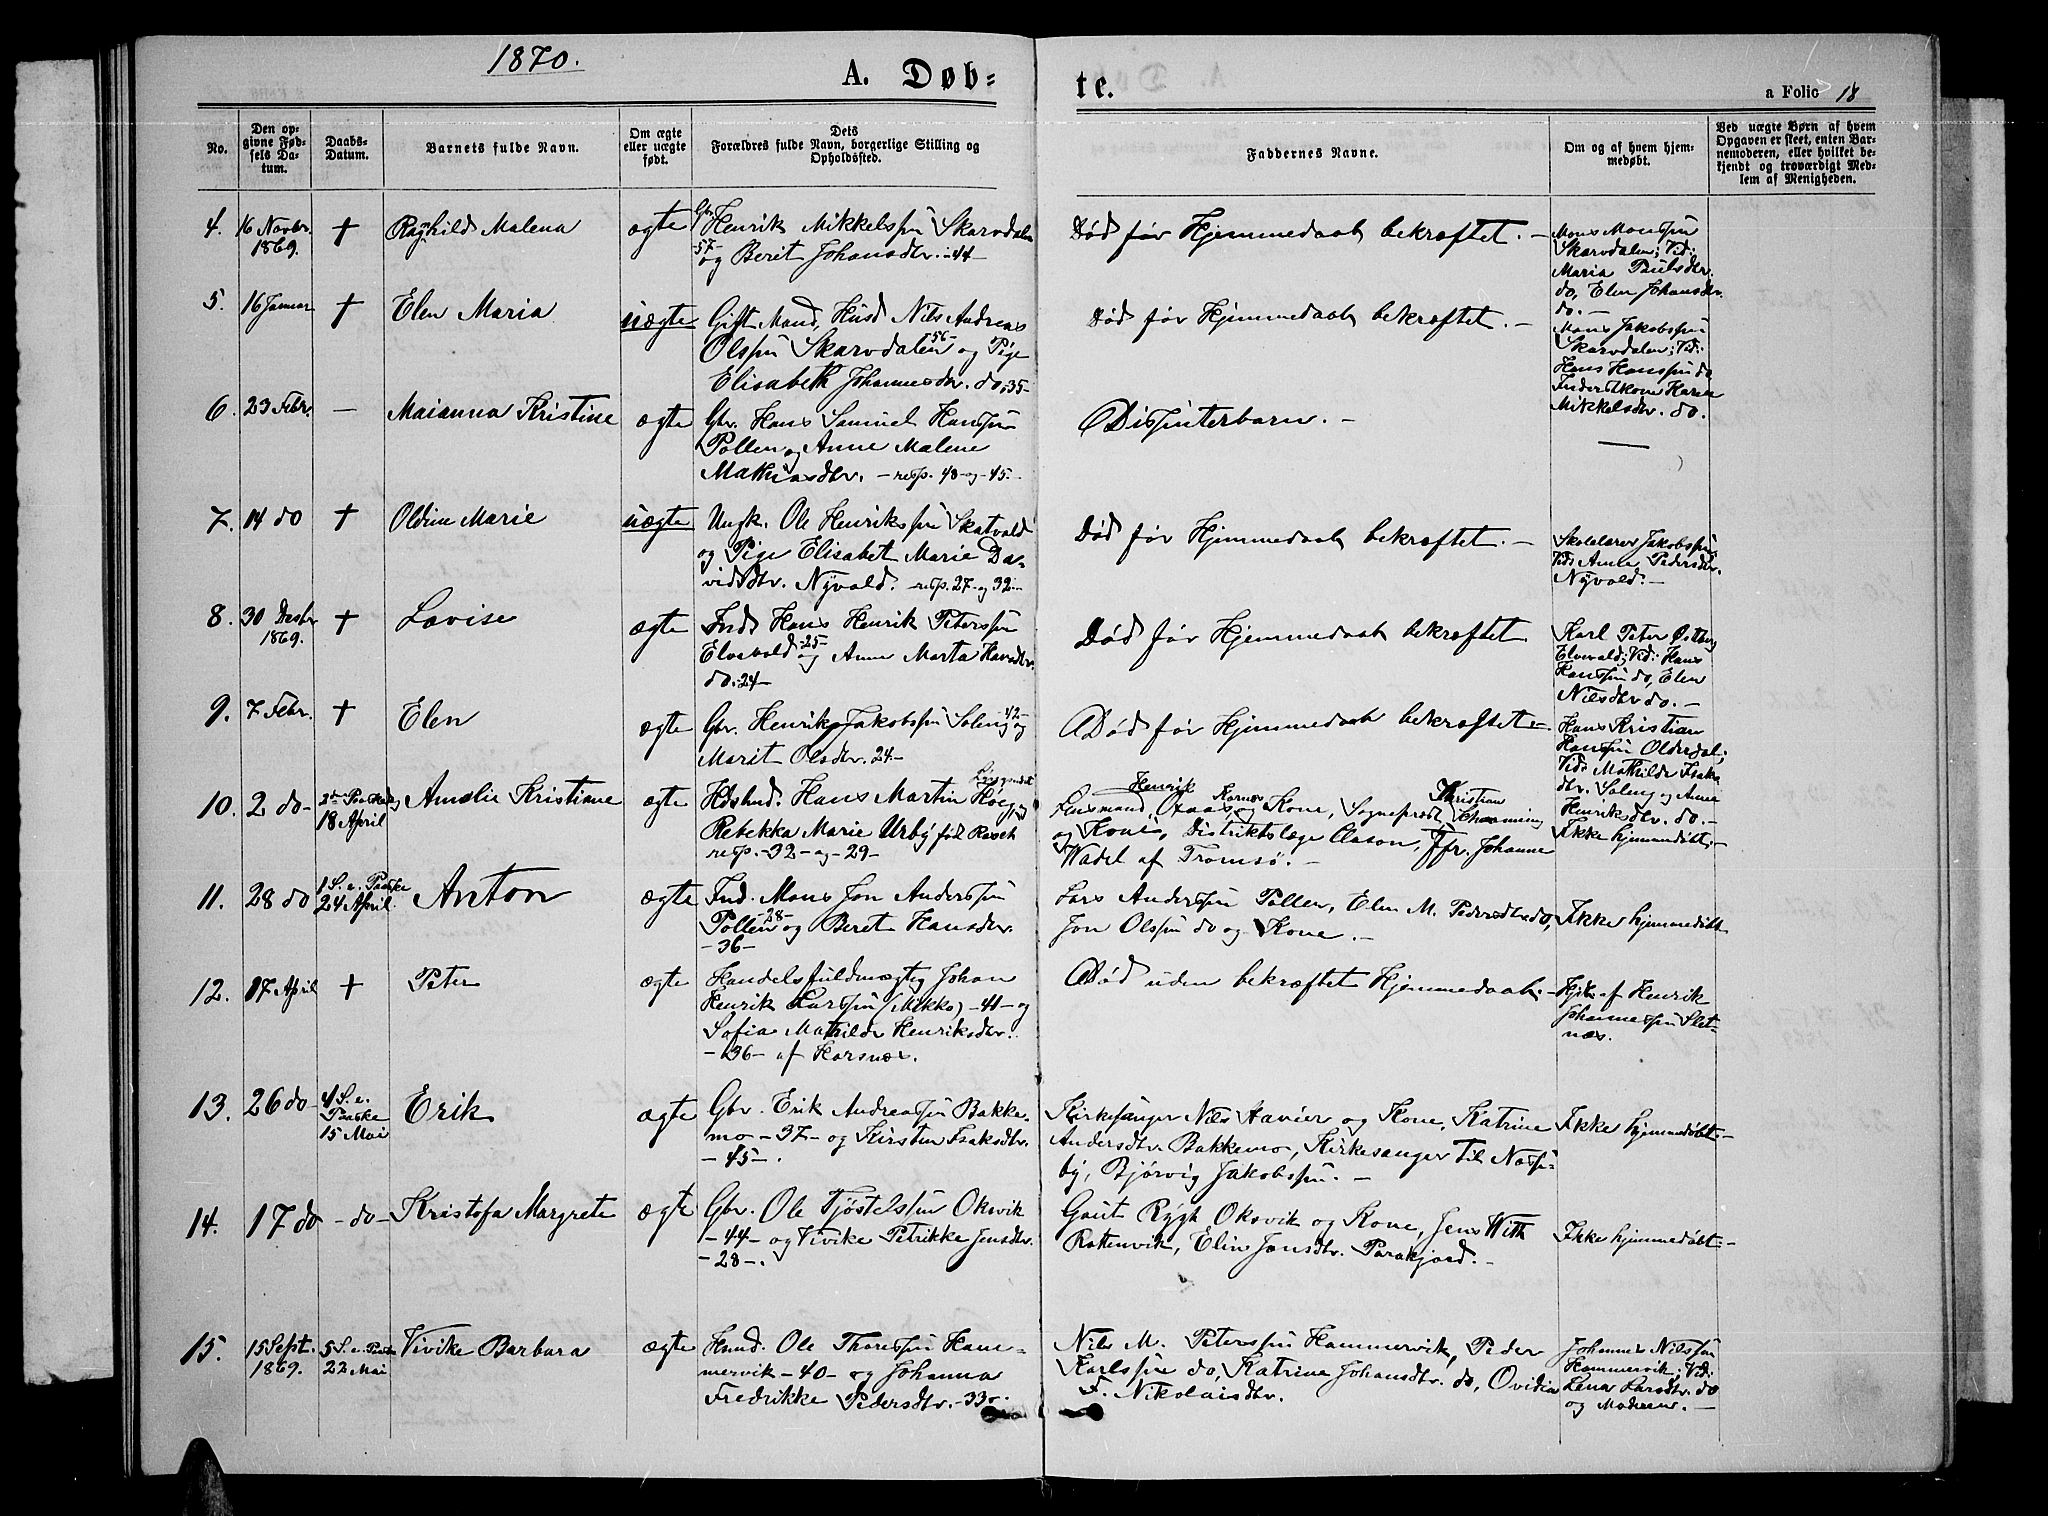 1870.
A. Døb-
te.
a Folio 18
No.
Den op-
givne Fød-
sels Da-
tum.
Daabs-
Datum.
Barnets fulde Navn.
Om ægte
eller uægte
født.
Dets
Forældres fulde Navn, borgerlige Stilling og
Opholdssted.
Faddernes Navne.
Om og af hvem hjem-
medøbt.
Ved uægte Børn af hvem
Opgaven er skeet, enten Bar-
nemoderen, eller hvilket be-
kjendt og troværdigt Med-
lem af Menigheden.
4.
16 Novbr.
1869.
†
Raghild Malena
ægte
Gbr. Henrik Mikkelssøn Skarvdalen
-57-
og Berit Johansdtr. -44-
Død før Hjemmedaab bekræftet. -
Mons Monssøn
Skarvdalen; Vid:
Maria Paulsdtr.
do, Elen Johansdtr.
do. -
5.
16 Januar
†
Elen Maria
uægte
Gift Mand, Husd Nils Andreas
Olssøn Skarvdalen -56- og Pige
Elisabeth Johannesdtr. do. -35-
Død før Hjemmedaab bekræftet. -
Mons Jakobssøn
Skarvdalen; Vid:
Hans Hanssøn do
Inderstkone Karen
Mikkelsdtr. do.
6.
23 Febr.
-
Marianna Kristine
ægte
Gbr. Hans Samuel Hanssøn
Pollen og Anne Malene
Mathiasdtr. - resp. 48 - og - 45. -
Dissenterbarn. -
7.
14 do
†
Oldine Marie
uægte
Ungk. Ole Henrikssøn Skatvold
og Pige Elisabet Marie Da-
vidsdtr. Nyvold. resp. 27 - og 32. -
Død før Hjemmedaab bekræftet. -
Skolelærer Jakobssøn.
Vid: Anne Pedersdtr.
Nyvold. -
8.
30 Desbr
1869.
†
Lovise
ægte
Inds Hans Henrik Peterssøn
Elvevold -25- og Anne Marta Hansdtr.
do. -24-
Død før Hjemmedaab bekræftet
Karl Peter Østberg
Elvevold; Vid: Hans
Hanssøn do, Elen
Nilsdtr do. -
9.
7 Febr.
†
Elen
ægte
Gbr. Henrik Jakobssøn Soleng -42- og
Marit Olsdtr. 24. -
Død før Hjemmedaab bekræftet. -
Hans Kristian
Hanssøn Olderdal;
Vid: Mathilde Isaks
dtr. Soleng og Anne
Henriksdtr. do. -
10.
2 do -
2den Paaskedag
18 April
Amalie Kristiane
ægte
Hdshnd. Hans Martin Høeg og
Rebekka Marie Urby født Rasch
resp. - 32 - og - 29 -
Henrik Karnes Kristian
Lensmand, Aas, og Kone, Sogneprest Schanning
og Kone, Distriktslæge Clason, Jfr. Johanne
Wadel af Tromsø. -
Ikke hjemmedøbt. -
11.
28 do
1 S. e. Paaske
24 April.
Anton
ægte
Ind. Mons Jon Anderssøn
Pollen -28- og Beret Hansdtr.
-36-
Lars Anderssøn Pollen, Elen M. Pedersdtr do,
Jon Olssøn do og Kone. -
Ikke hjemmedøbt
12.
17 April
†
Peter
ægte
Handelsfuldmægtig Johan
Henrik Larssøn (Mikko) -41- og
Sofia Mathilde Henriksdtr.
-36- af Horsnæs.
Død uden bekræftet Hjemmedaab. -
Hjdbt af Henrik
Johannessøn Slet-
næs.
13.
26 do -
4 S. e.
Paaske
15 Mai
Erik
ægte
Gbr. Erik Andreassøn Bakke-
mo -37- og Kirsten Isaksdtr.
-45-.
Kirkesanger Nils Xavier og Kone, Katrine
Andersdtr. Bakkemo, Kirkesanger til Nesse-
by, Bjørvig Jakobssøn. -
Ikke hjemmedøbt. -
14.
17 do
- do -
Kristofa Margrete
ægte
Gbr. Ole Tjøstelssøn Oksvik
-44- og Vivike Petrikke Jensdtr.
-28-.
Gaut Rygh Oksvik og Kone, Jens With
Rottenvik, Elin Jonsdtr. Parakjord. -
Ikke hjemmedøbt. -
15.
15 Sept.
1869.
5 S. e. Paaske
22 Mai
Vivike Barbara
ægte
Husd. Ole Thoressøn Ham-
mervik -40- og Johanna
Fredrikke Pedersdtr. -33-
Nils M. Peterssøn Hammervik, Peder
Karlssøn do, Katrine Johansdtr. do, Ovidia
F. Nikolaisdtr.
Johannes Nilssøn
Hammervik; Vid:
Lena Larsdtr. do
og Moderen. -